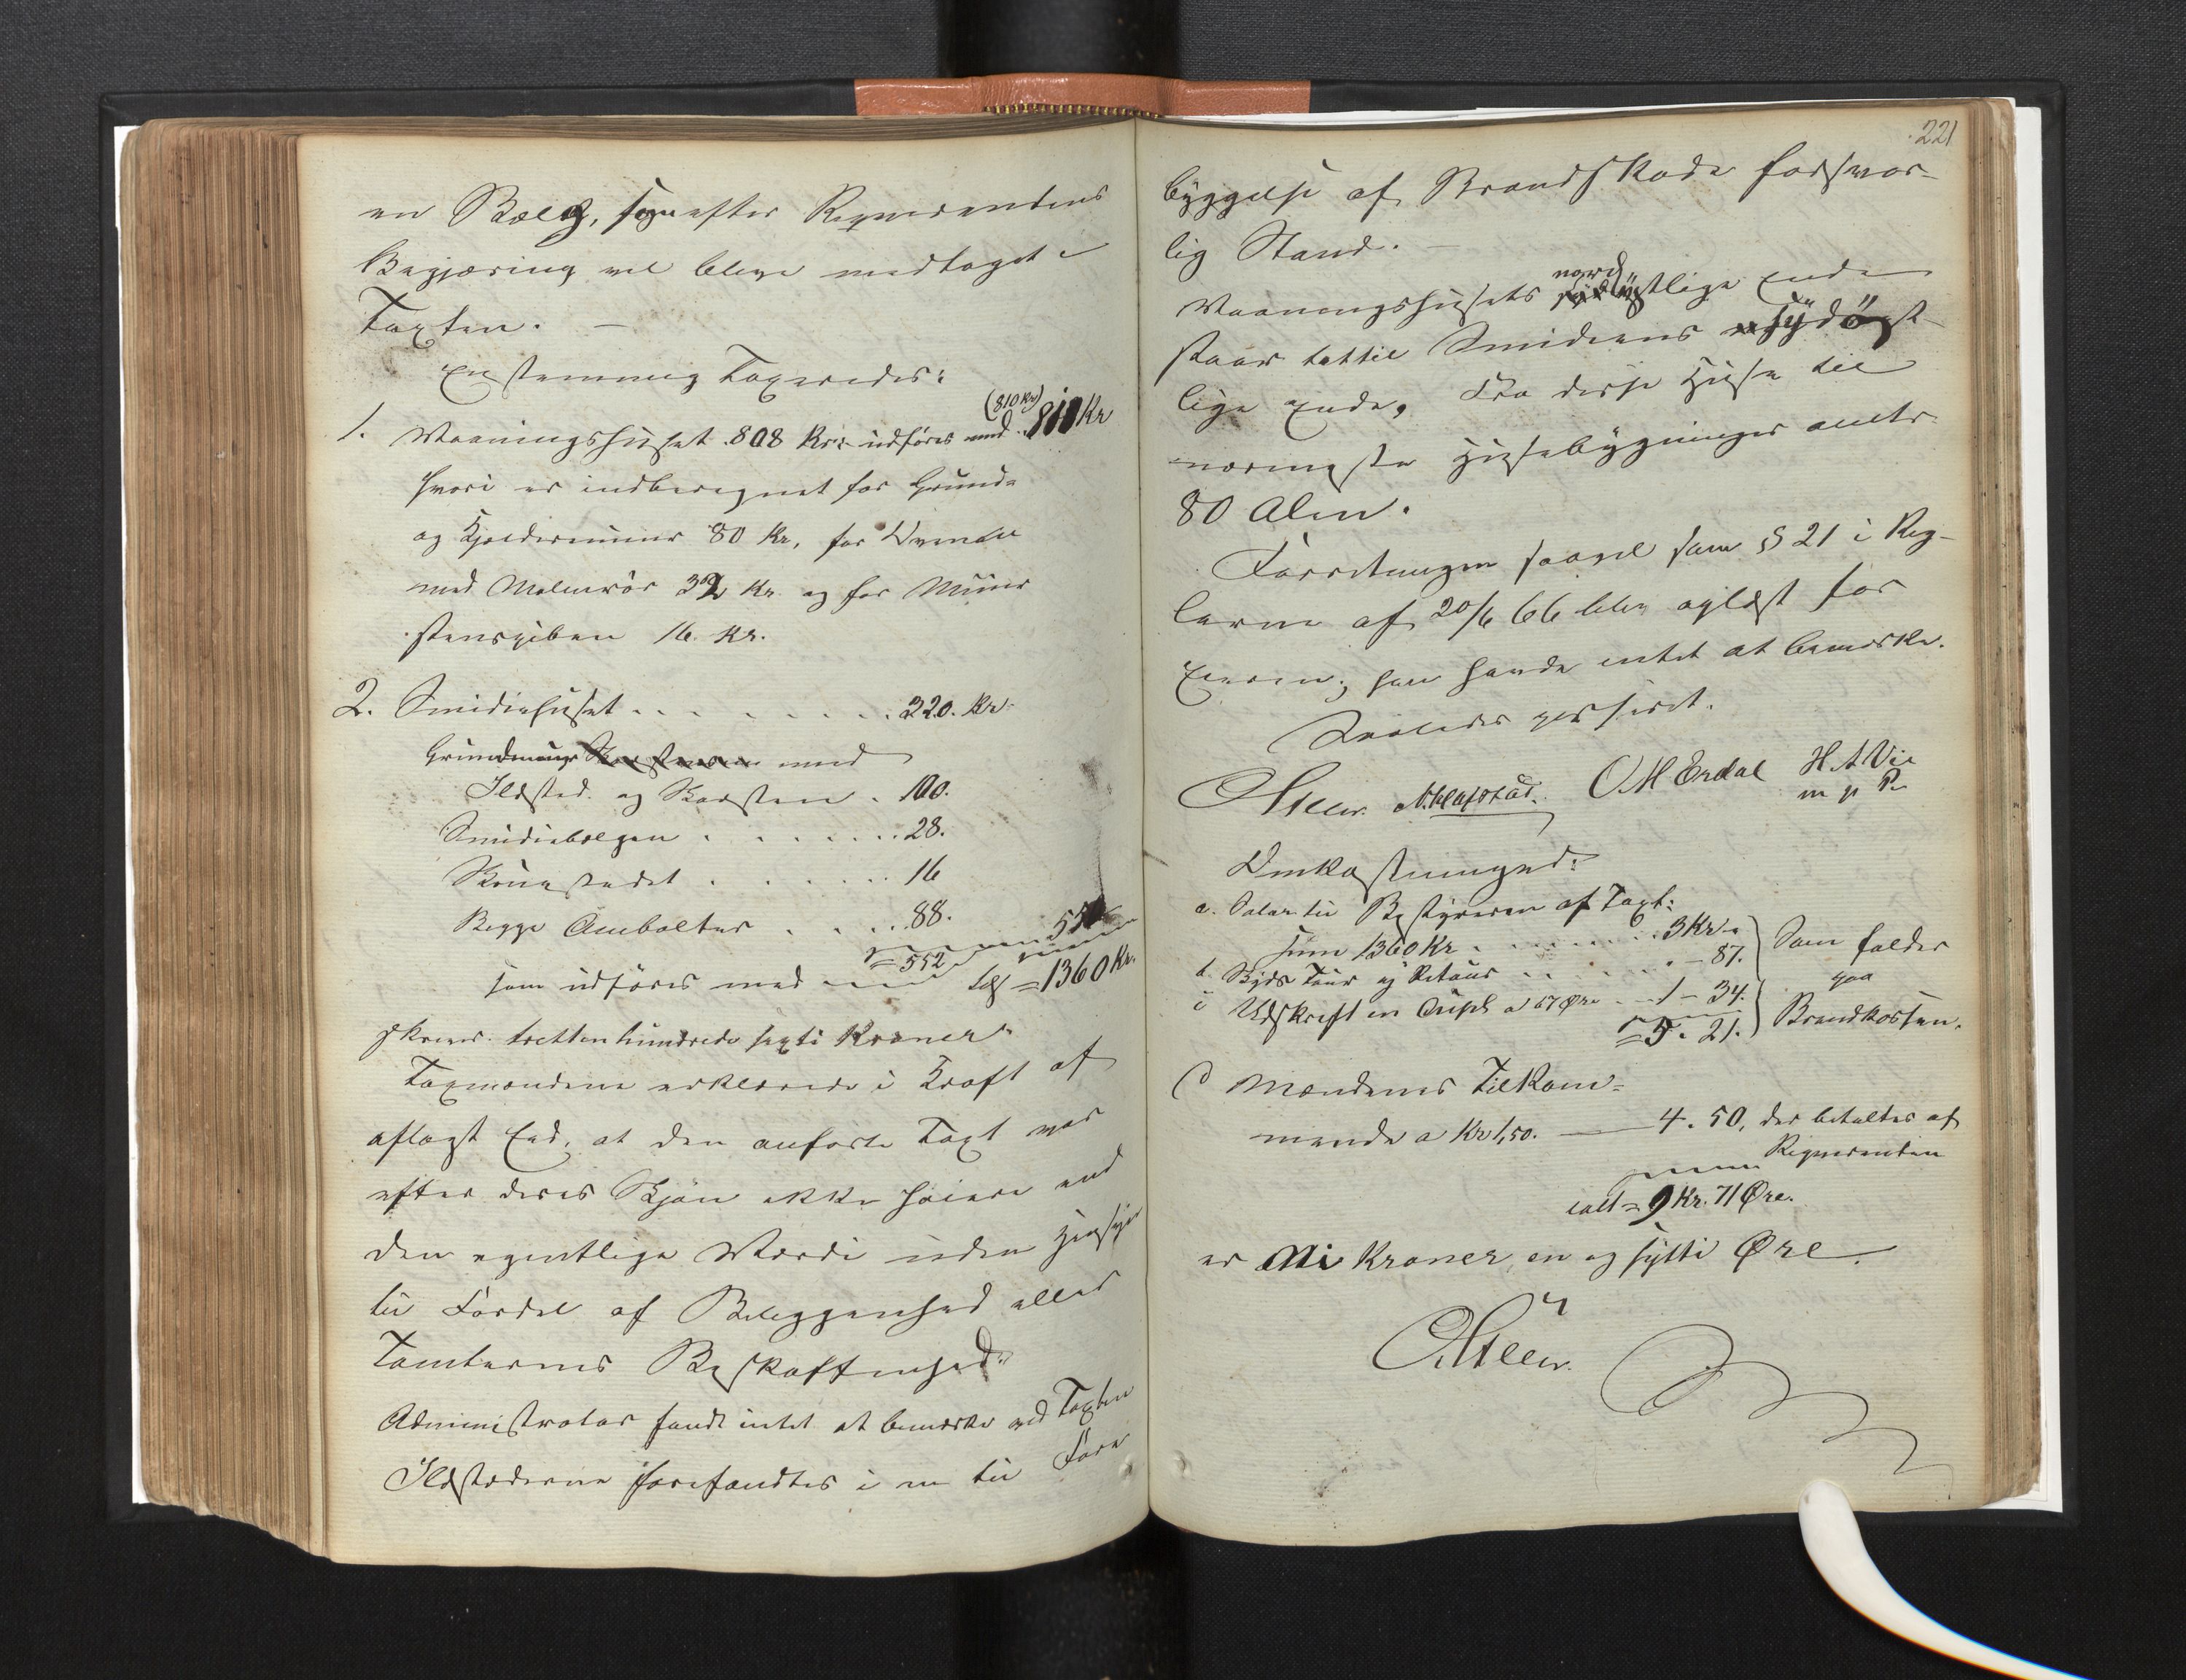 en Bælg, som efter Reqvirentens
Begjæring vil blive medtaget i
Taxten. —
Enstemmig Taxeredes:
1. Vaaningshuset 808 Kr: udføres med (810 Kr) 810 Kr
hvori er indberegnet for Grund-
og Kjælderemuur 80 Kr, for Ovnen
med Malmrør 32 Kr. og for Muur
stenspiben 16 Kr.
2. Smidiehuset . . . . . . . 320. Kr.
Grundmuur med
Ildsted og Skorsten . 100.
Smidiebælgen . . . . . . 28.
Skruestedet . . . . . 16
Begge Ambolter . . . . 88.
= 552 550
som udføres med Tils = 1360 Kr.
skriver tretten hundrede sexti Kroner
Taxmændene erklærede i Kraft af
aflagt Eed, at den anførte Taxt var
efter deres Skjøn ikke høiere end
den egentlige Værdi uden Hensyn
til Fordel af Beliggenhed eller
Tomternes Beskaffenhed.
Administrator fandt intet at bemærke ved Taxten
Ildstederne forefandtes i en til Fore
221
byggelse af Brandskade forsvar-
lig Stand. —
Vaaningshusets nordøstlige Ende
staar tættil Smidiens sydøst-
lige Ende. Fra disse Huse til
nærmeste Huusebygninger antr.
80 Alen.
Forretningen saavel som § 21 i Reg-
lerne af 20/6 66 blev oplæst for
Eieren; han havde intet at bemærke.
Saaledes passeret.
O. M Erdal H. A Vie
m p P.
Omkostninger:
a. Salær til Bestyreren af Taxt:
sum 1360 Kr . . . . . . . 3 Kr -
b. Skyds Tour og Retour . . . . . . - 87.
c Udskrift in dupl. a 67 Øre . . 1 - 34.
= 5. 21.
Som falder
paa
Brandkassen.
d Mændenes Tilkom-
mende a Kr 1,50. — 4. 50, der betaltes af
Reqvirenten
ialt = 9 Kr. 71 Øre.
er Ni Kroner en og sytti Øre.